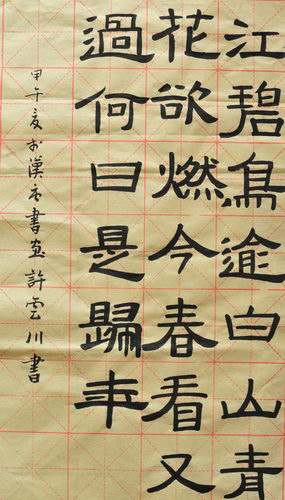 江碧鳥逾白山青
花欲燃今春看又
過何日是歸年
甲午夏於漢書画許雲川書